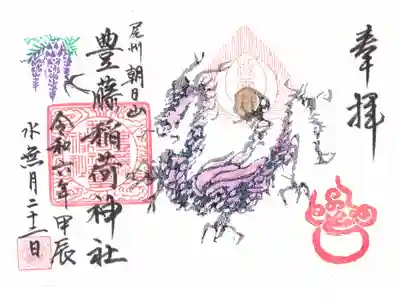 奉拝
尾州 朝日山
豊藤稲荷神社
令和六年 甲辰
水無月二十二日